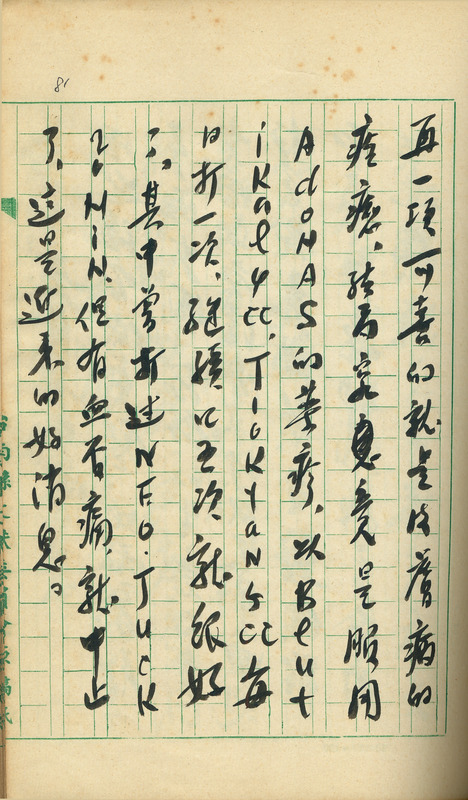 81
再一項可喜的就是皮膚病的
痊癒、結局 竟是服用
AdONAS的葯疹、以Beut
ikal4cc.TiOKTaN5cc每
日打一次、繼續四五次、就很好
了、其中嘗打過NEO.TUCK
MiN.但有血 痛、就中止
了、這是近來的好消息。